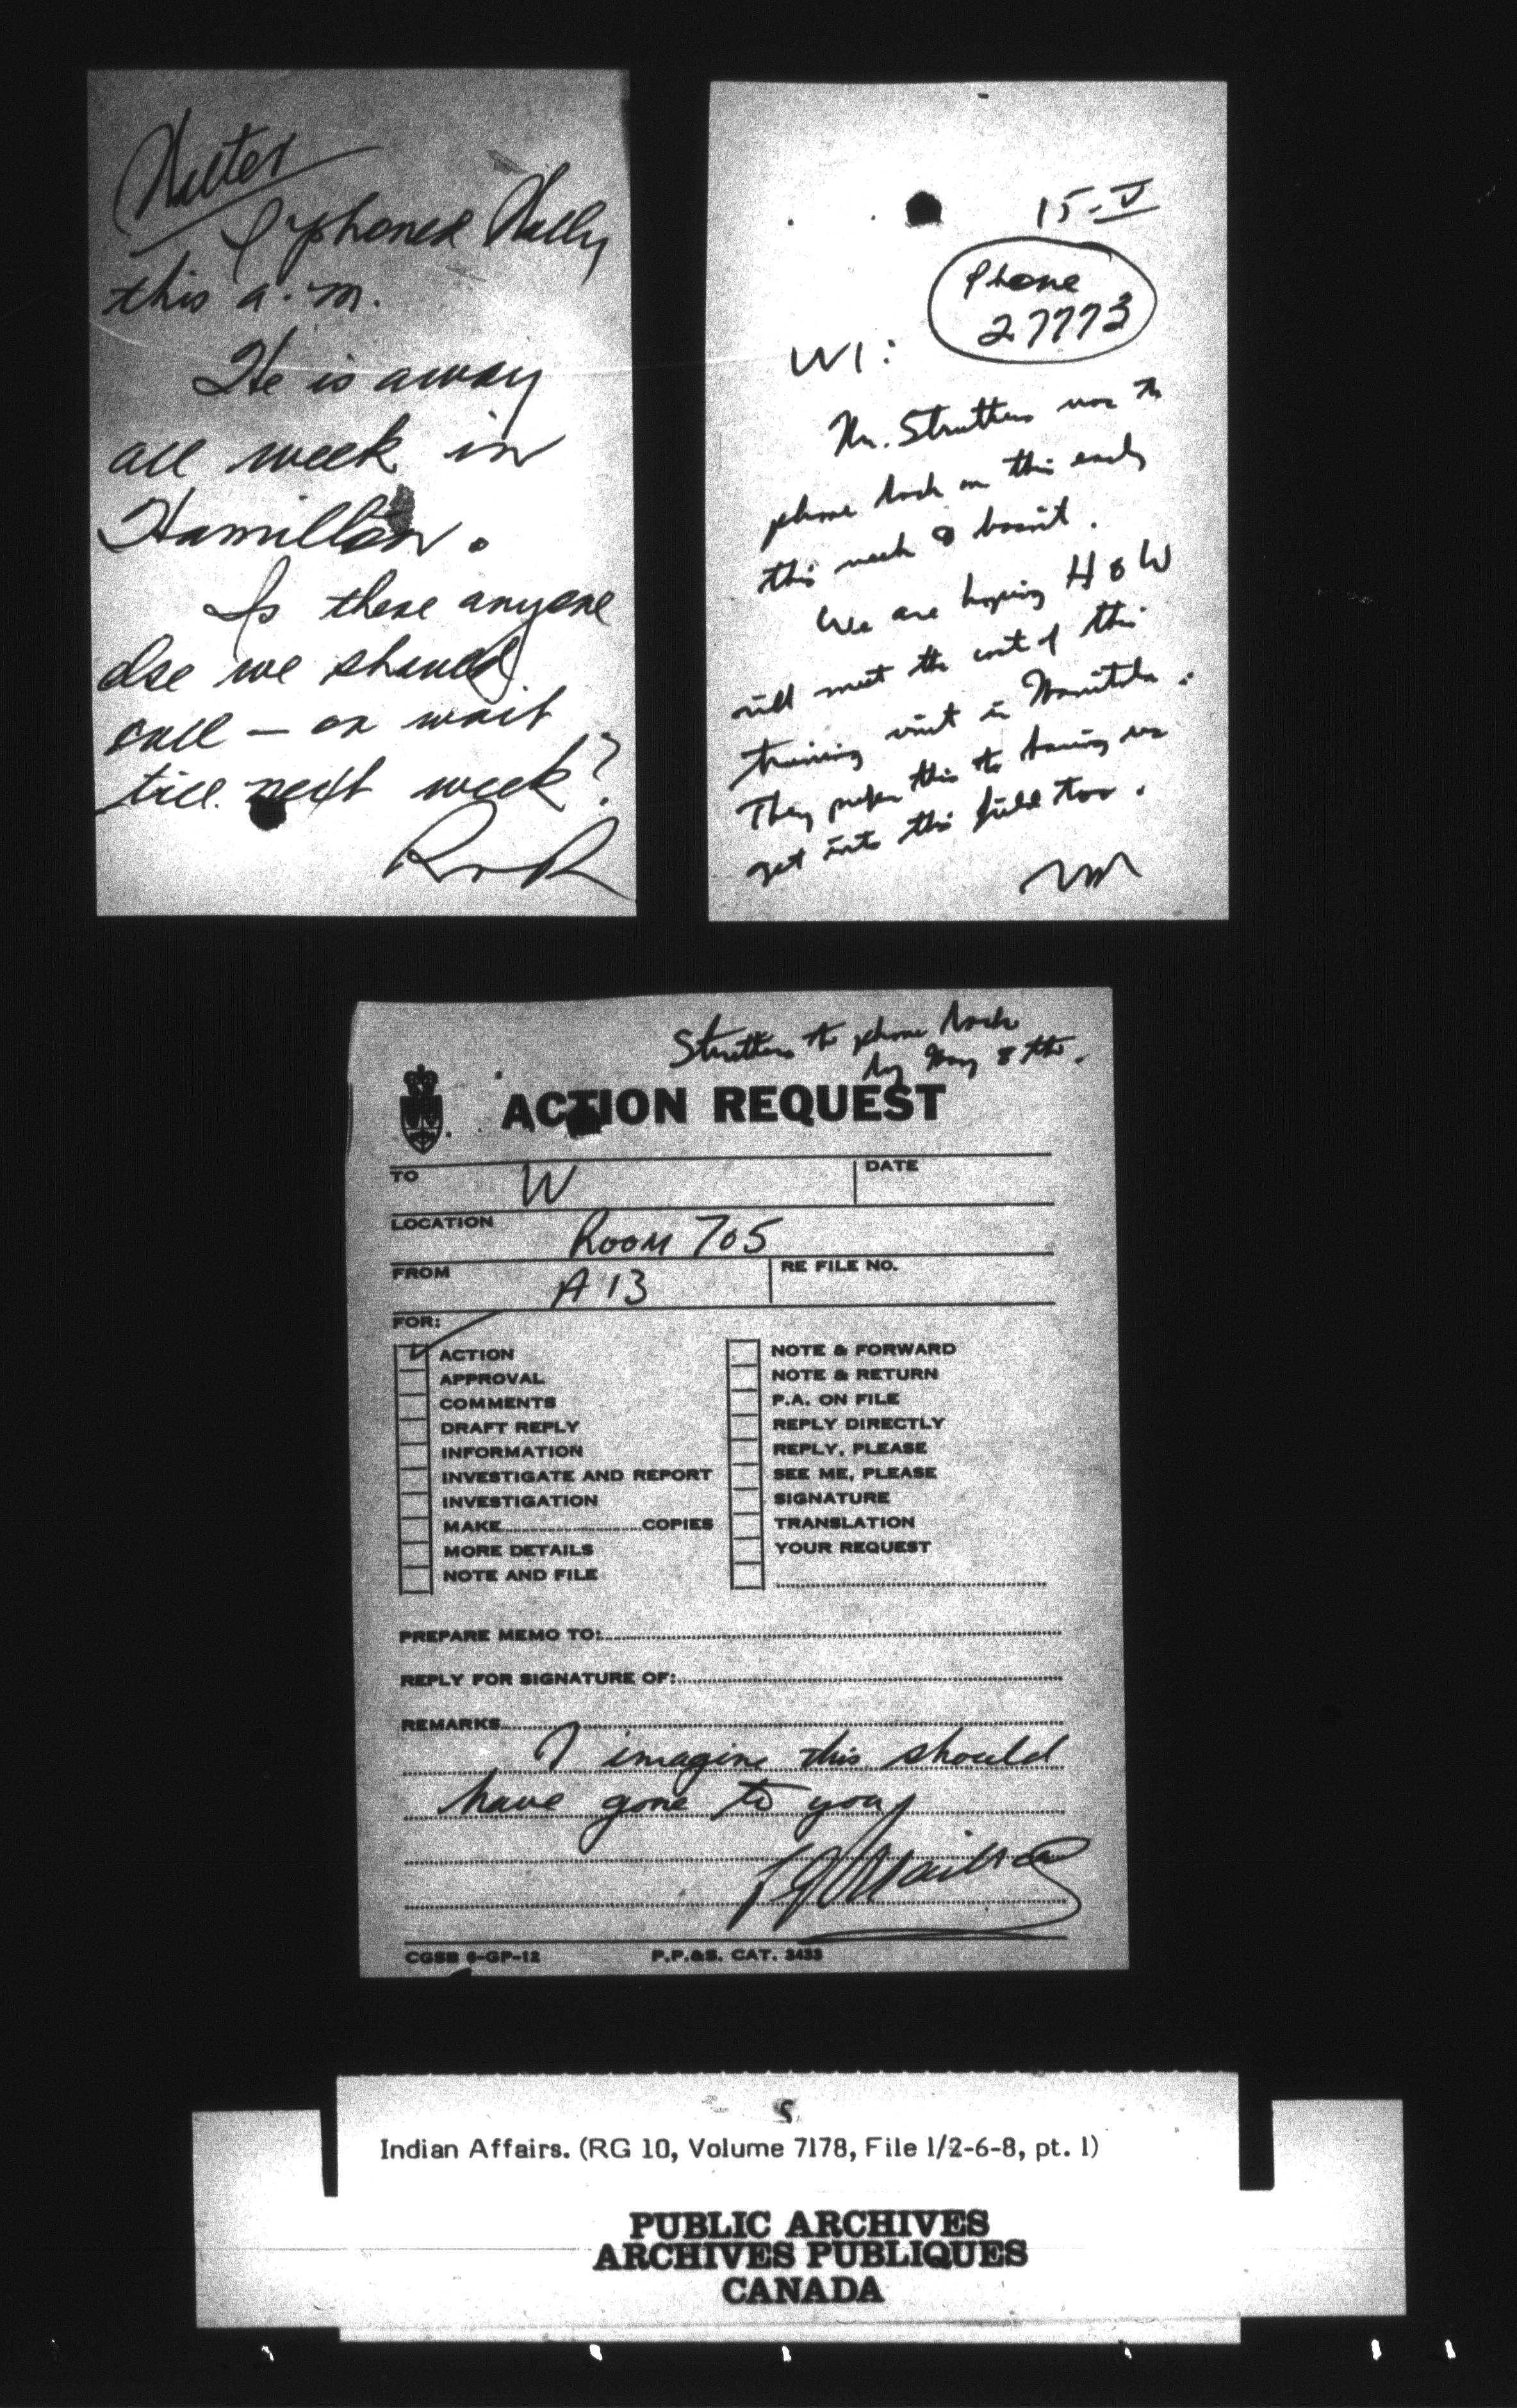 Walter
I phoned Wally
this a.m.
He is away
all week in
Hamilton.
Is there anyone
else we should
call — or wait
till next week?
RmR
15-V
Phone
27773
W1:
Mr. Struthers was to
phone back on this early
this week & hasn't.
We are hoping H & W
will meet the cost of this
training visit in Manitoba.
They prefer this to having us
get into this field too.
Struthers to phone back
by May 8th.
ACTION REQUEST
TO W DATE
LOCATION Room 705
FROM A 13 RE FILE NO.
FOR:
ACTION
APPROVAL
COMMENTS
DRAFT REPLY
INFORMATION
INVESTIGATE AND REPORT
INVESTIGATION
MAKE COPIES
MORE DETAILS
NOTE AND FILE
NOTE & FORWARD
NOTE & RETURN
P.A. ON FILE
REPLY DIRECTLY
REPLY, PLEASE
SEE ME, PLEASE
SIGNATURE
TRANSLATION
YOUR REQUEST
PREPARE MEMO TO:
REPLY FOR SIGNATURE OF:
REMARKS
I imagine this should
have gone to you
CGSB 6-GP-12 P.P.&S. CAT. 3433
S
Indian Affairs. (RG 10, Volume 7178, File 1/2-6-8, pt. 1)
PUBLIC ARCHIVES
ARCHIVES PUBLIQUES
CANADA